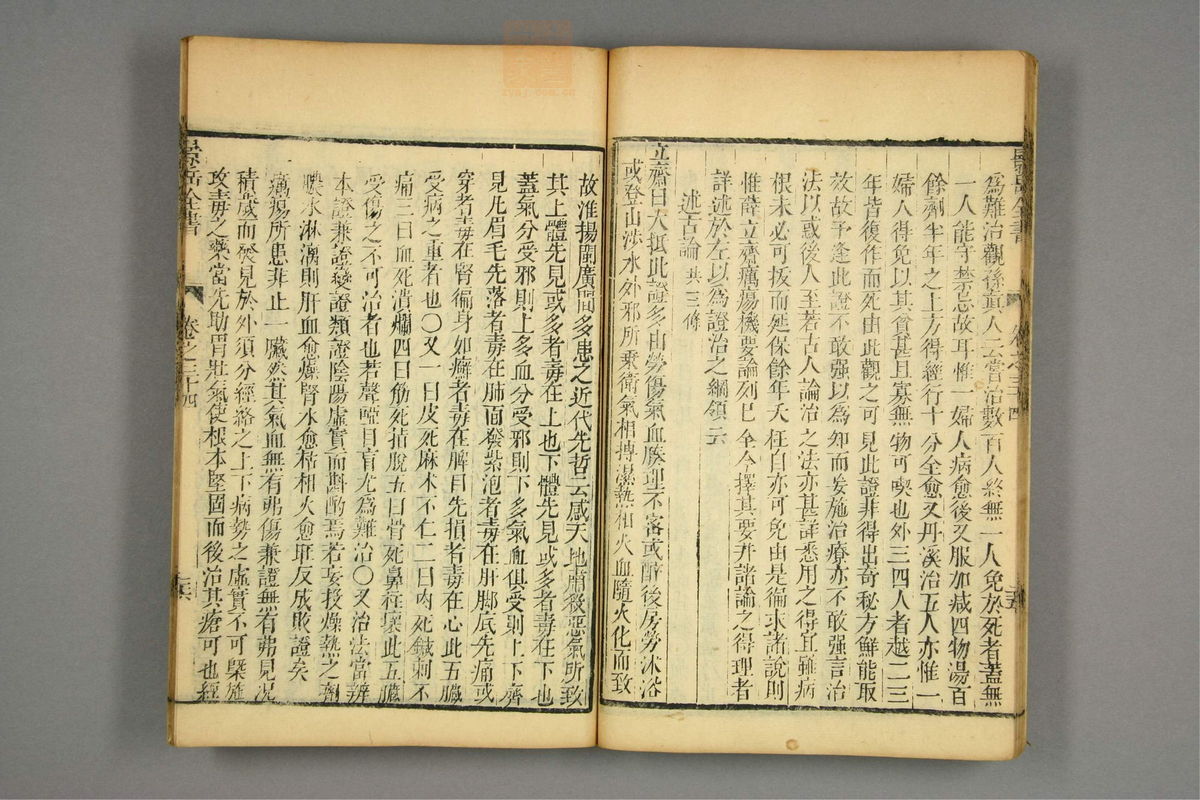 景岳全書 卷之三十四
為難治觀孫真人云嘗治數百人終無一人免於死者蓋無
一人能守禁忌故耳惟一婦人病愈後又服加減四物湯百
餘劑半年之上方得經行十分全愈又丹溪治五人亦惟一
婦人得免以其貧甚且寡無物可喫也外三四人者越二三
年皆復作而死由此觀之可見此證非得出奇秘方鮮能取
效故予逢此證不敢强以為知而妄施治療亦不敢强言治
法以或後人至若古人論治之法亦甚詳悉用之得宜雖病
根未必可拔而延保餘年夭枉自亦可免由是徧求諸說則
惟薛立齋癘瘍機要論列已全今擇其要并諸論之得理者
詳述於左以為證治之綱領云
述古論 共三條
立齋曰大抵此證多由勞傷氣血腠理不密或醉後房勞沐浴
或登山涉水外邪所乘衛氣相搏濕熱相火血隨火化而致
故淮揚閩廣間多患之近代先哲云感天地肅殺惡氣所致
其上體先見或多者毒在上也下體先見或多者毒在下也
蓋氣分受邪則上多血分受邪則下多氣血俱受則上下齊
見凡眉毛先落者毒在肺面發紫泡者毒在肝脚底先痛或
穿者毒在腎徧身如癬者毒在脾目先損者毒在心此五臟
受病之重者也○又一曰皮死麻木不仁二曰肉死鍼刺不
痛三曰血死潰爛四曰筋死指脫五曰骨死鼻柱壞此五臟
受傷之不可治者也若聲啞目盲尤為難治○又治法當辨
本證兼證變證類證陰陽虛實而斟酌焉若妄投燥熱之劑
膿水淋漓則肝血愈燥腎水愈枯相火愈旺反成敗證矣
癘瘍所患非止一臟然其氣血無有弗傷兼證無有弗見況
積歲而發見於外須分經絡之上下病勢之虛實不可槩施
攻毒之藥當先助胃壯氣使根本堅固而後治其瘡可也經
景岳全書 卷之三十四